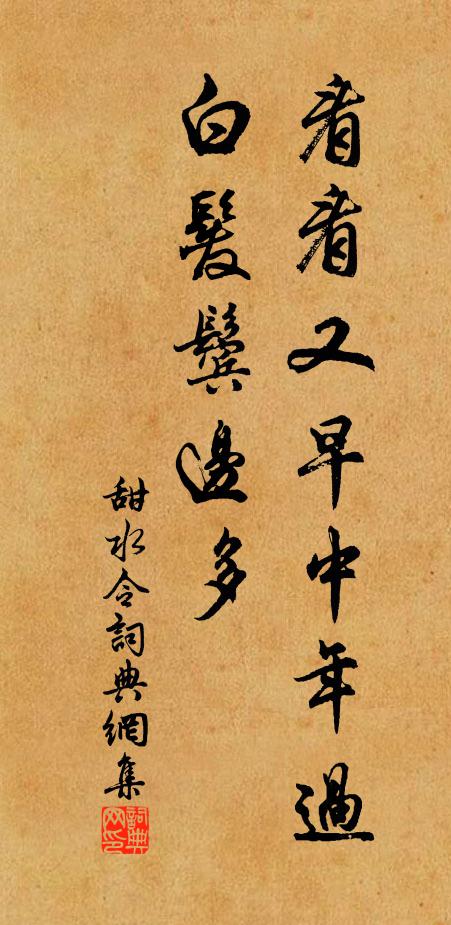 看看又早中年過
白髮鬢邊多
甜水令詞典網集
詞典网印